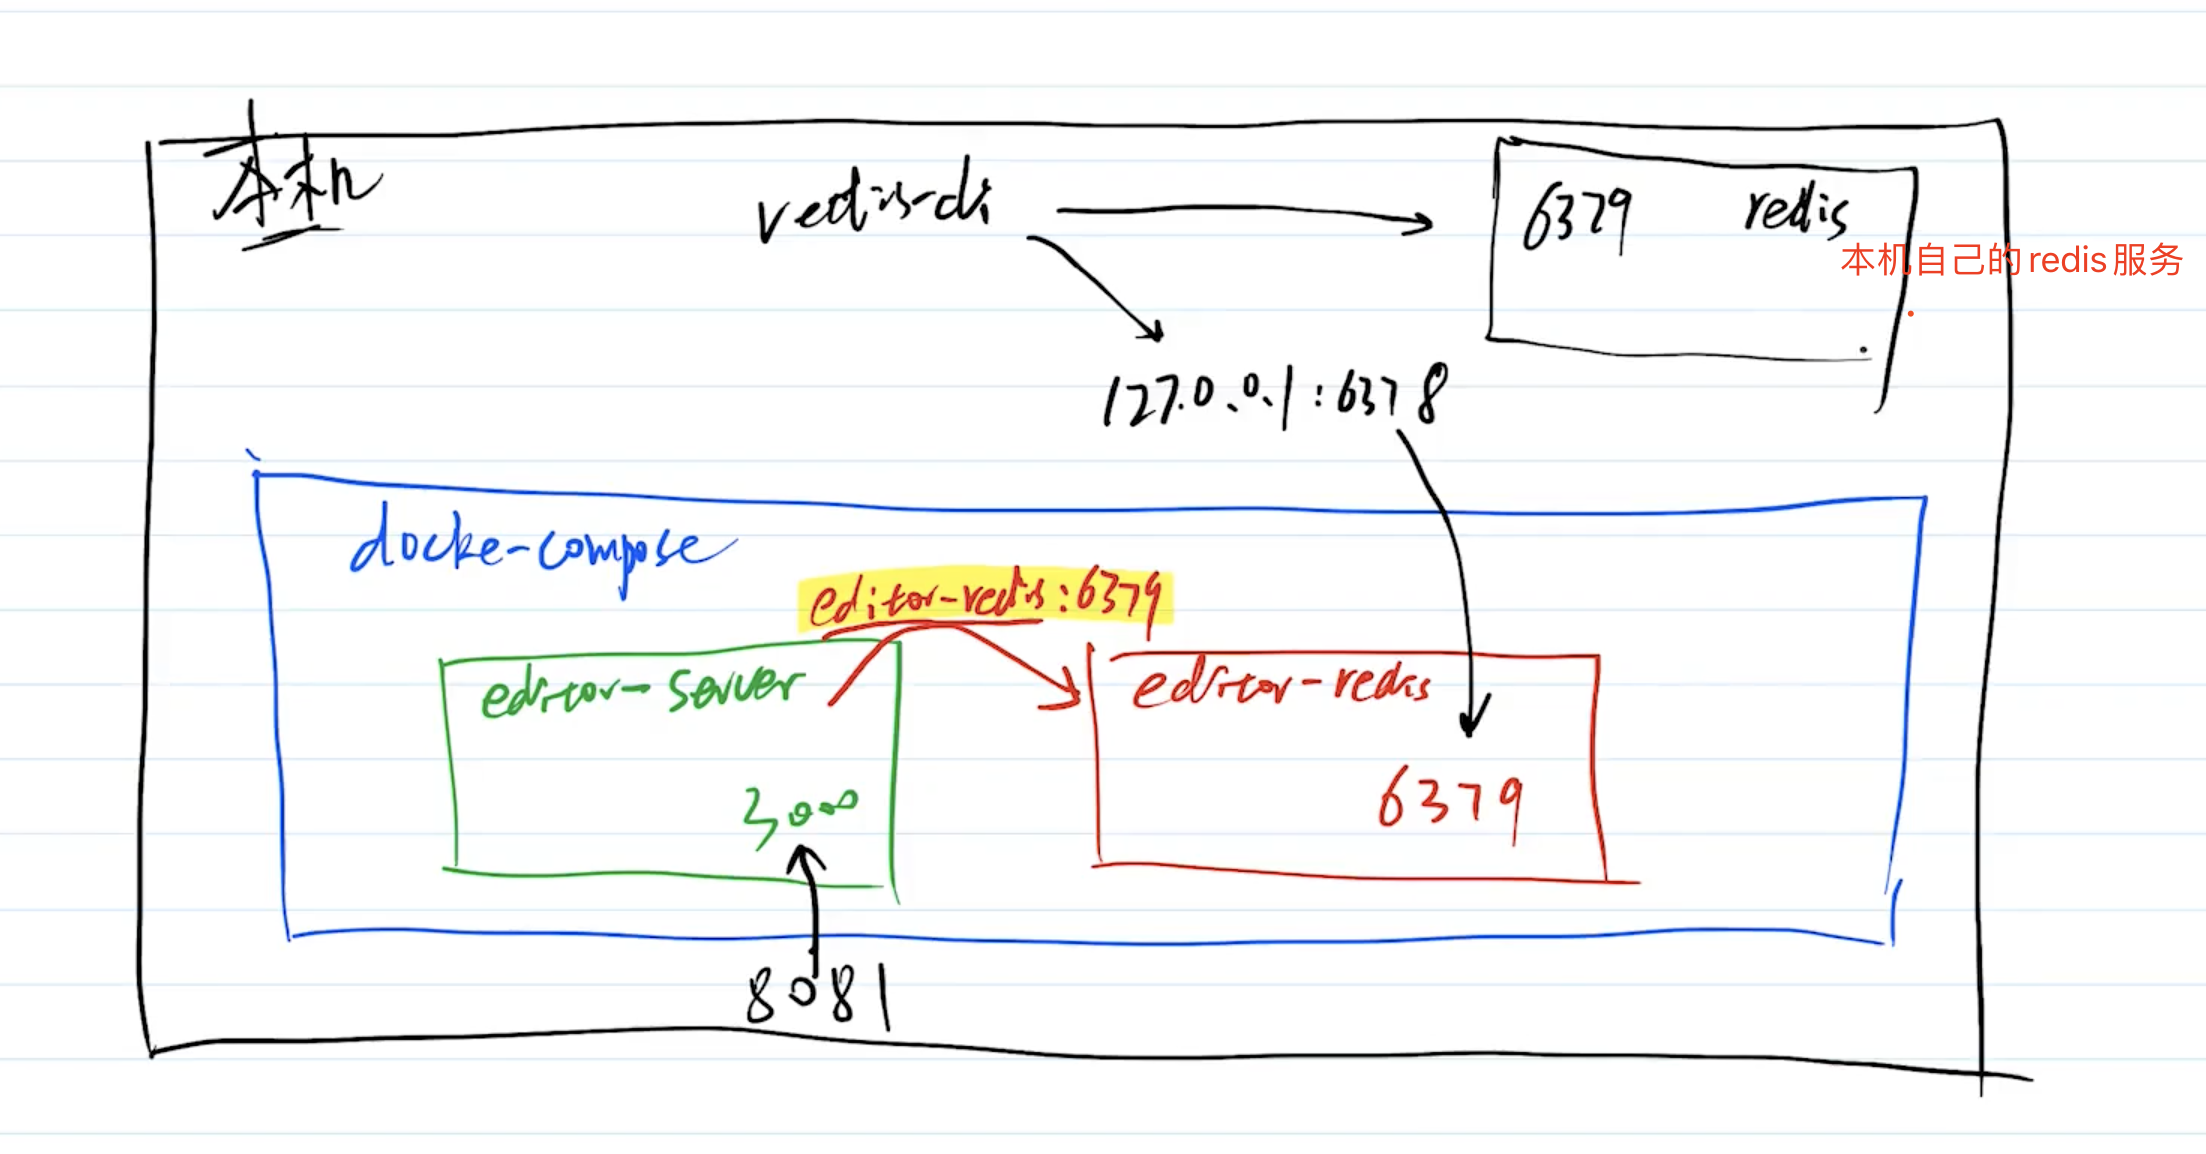 本机
redis-cli
6379 redis
本机自己的redis服务
127.0.0.1:6378
docke-compose
editor-redis:6379
editor-server
editor-redis
3000
6379
8081